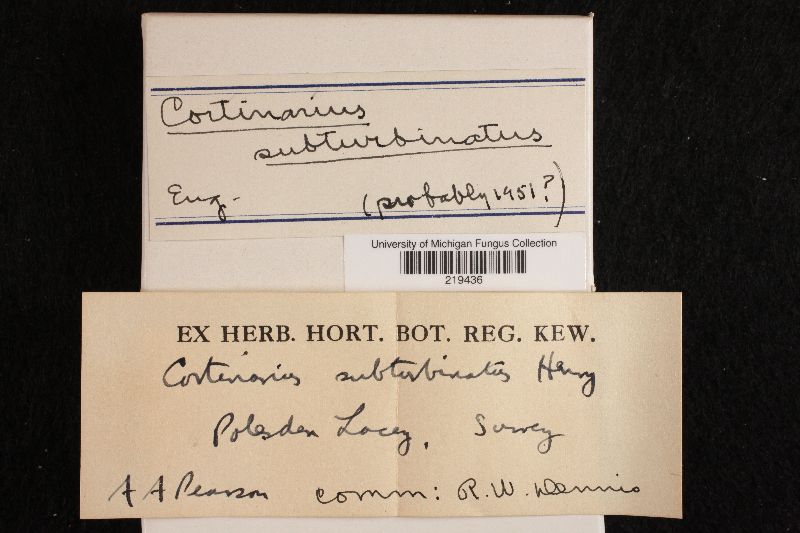 Cortinarius
subturbinatus
Eng. (probably 1951?)
University of Michigan Fungus Collection
219436
EX HERB. HORT. BOT. REG. KEW.
Cortinarius subturbinatus Henry
Polesden Lacey, Surrey
A A Pearson comm: R. W. Dennis